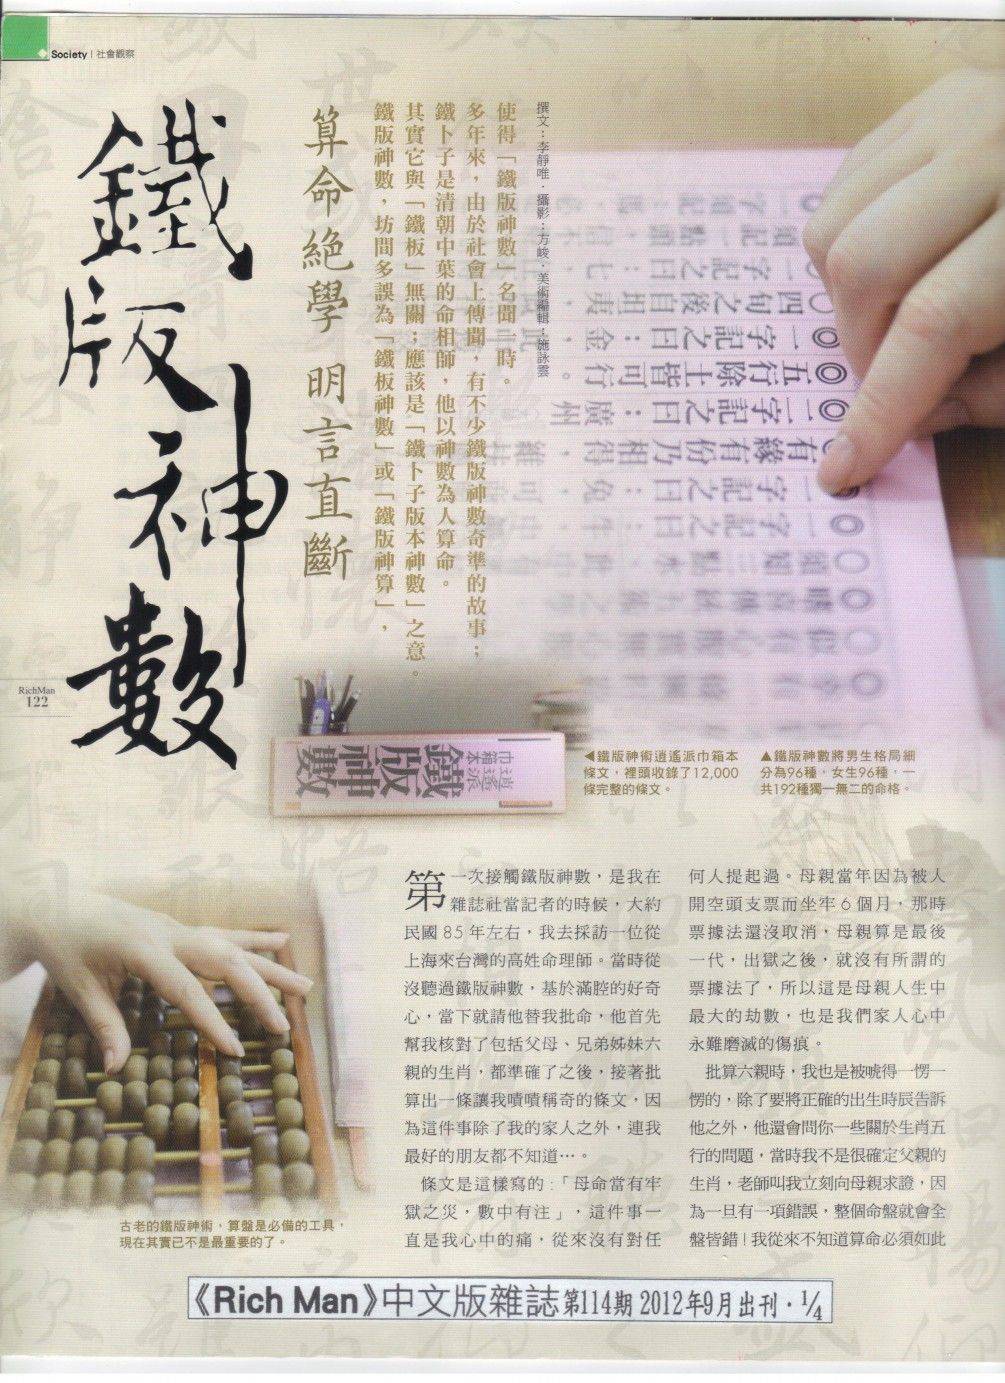 Society | 社會觀察
鐵版神數
算命絕學 明言直斷
鐵版神數，坊間多誤為「鐵板神數」或「鐵版神算」，
其實它與「鐵板」無關；應該是「鐵卜子版本神數」之意。
鐵卜子是清朝中葉的命相師，他以神數為人算命。
多年來，由於社會上傳聞，有不少鐵版神數奇準的故事；
使得「鐵版神數」名聞一時。
撰文：李靜唯．攝影：方峻．美術編輯：施詠雲
一字記之曰：七
四句之後自坦夷
一字記之曰：金
五行除土皆可行。
二字記之曰：廣州
有緣有份乃相得
一字記之曰：兔
一字記之曰：牛
RichMan
122
逍遙派
巾箱本
鐵版
神數
◀鐵版神術逍遙派巾箱本
條文，裡頭收錄了12,000
條完整的條文。
▲鐵版神數將男生格局細
分為96種，女生96種，一
共192種獨一無二的命格。
第一次接觸鐵版神數，是我在
雜誌社當記者的時候，大約
民國85年左右，我去採訪一位從
上海來台灣的高姓命理師。當時從
沒聽過鐵版神數，基於滿腔的好奇
心，當下就請他替我批命，他首先
幫我核對了包括父母、兄弟姊妹六
親的生肖，都準確了之後，接著批
算出一條讓我嘖嘖稱奇的條文，因
為這件事除了我的家人之外，連我
最好的朋友都不知道…。
條文是這樣寫的：「母命當有牢
獄之災，數中有注」，這件事一
直是我心中的痛，從來沒有對任
何人提起過。母親當年因為被人
開空頭支票而坐牢6個月，那時
票據法還沒取消，母親算是最後
一代，出獄之後，就沒有所謂的
票據法了，所以這是母親人生中
最大的劫數，也是我們家人心中
永難磨滅的傷痕。
批算六親時，我也是被唬得一愣一
愣的，除了要將正確的出生時辰告訴
他之外，他還會問你一些關於生肖五
行的問題，當時我不是很確定父親的
生肖，老師叫我立刻向母親求證，因
為一旦有一項錯誤，整個命盤就會全
盤皆錯！我從來不知道算命必須如此
古老的鐵版神術，算盤是必備的工具，
現在其實已不是最重要的了。
《Rich Man》中文版雜誌第114期 2012年9月出刊．¼